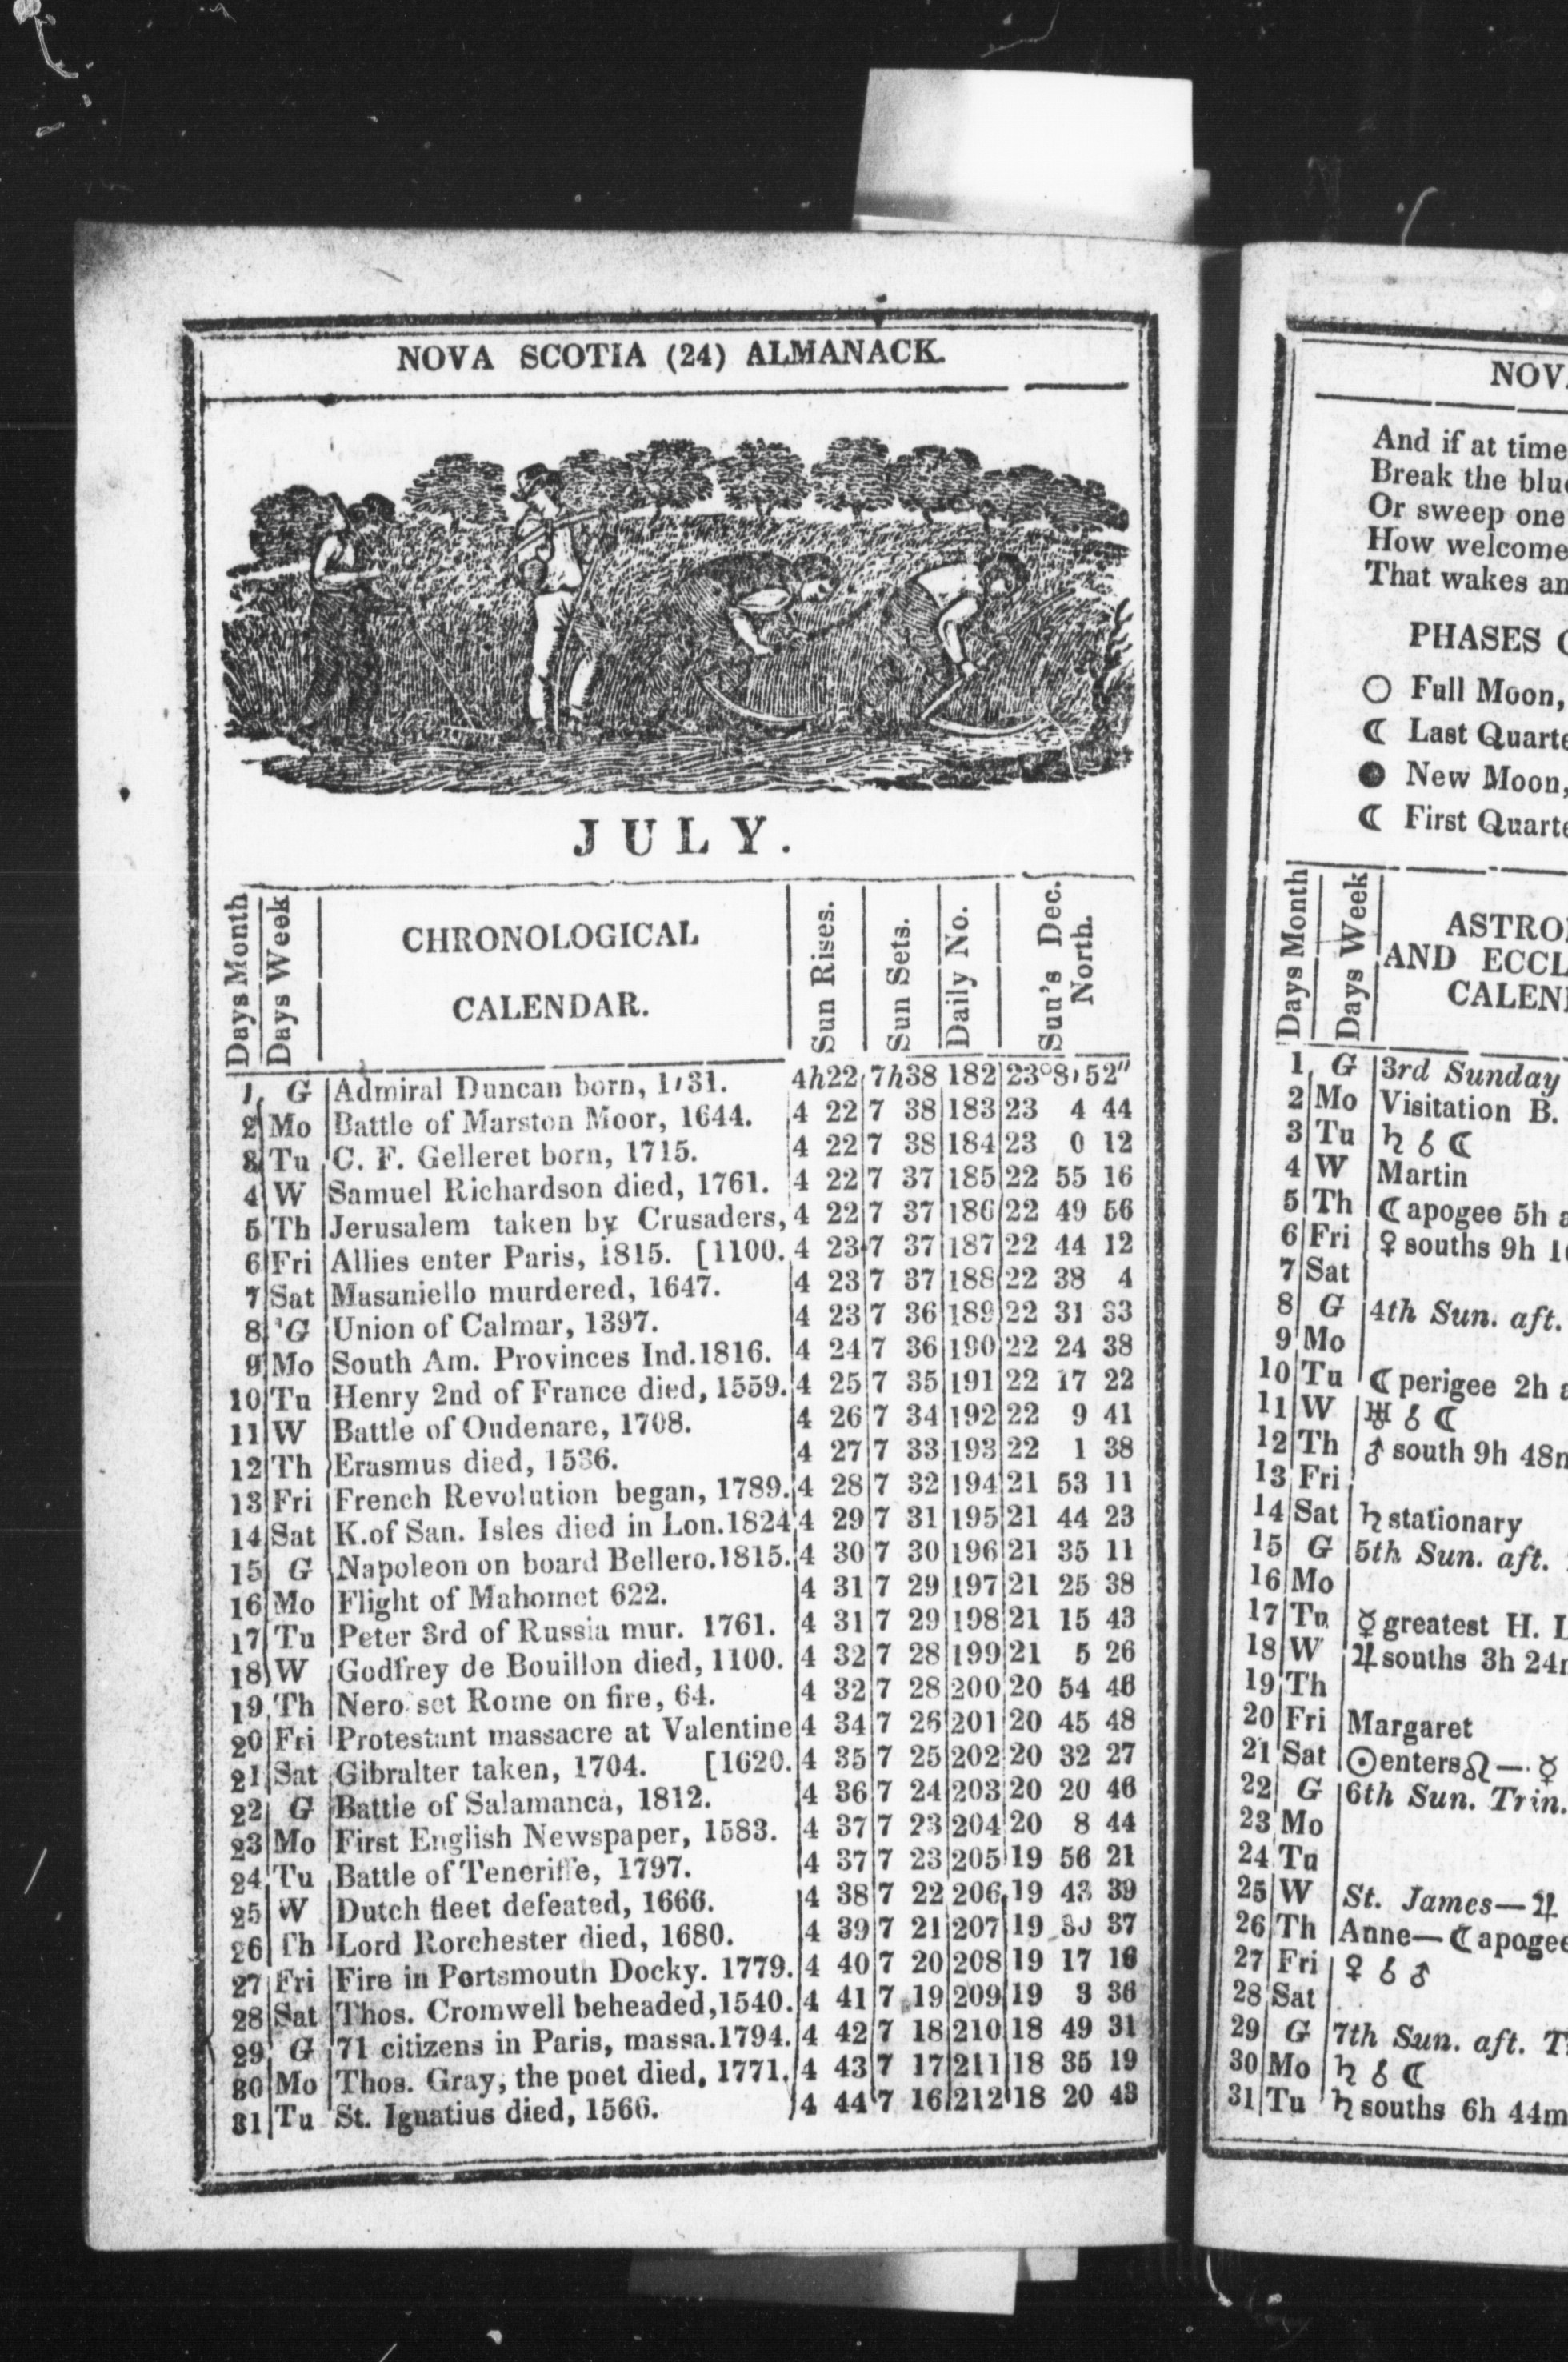 NOVA SCOTIA (24) ALMANACK.
JULY.
Days Month
Days Week
CHRONOLOGICAL
CALENDAR.
Sun Rises.
Sun Sets.
Daily No.
Sun's Dec.
North.
1 G Admiral Duncan born, 1731. 4h22 7h38 182 23°8'52"
2 Mo Battle of Marston Moor, 1644. 4 22 7 38 183 23 4 44
3 Tu C. F. Gelleret born, 1715. 4 22 7 38 184 23 0 12
4 W Samuel Richardson died, 1761. 4 22 7 37 185 22 55 16
5 Th Jerusalem taken by Crusaders, 4 22 7 37 186 22 49 56
6 Fri Allies enter Paris, 1815. [1100. 4 23 7 37 187 22 44 12
7 Sat Masaniello murdered, 1647. 4 23 7 37 188 22 38 4
8 G Union of Calmar, 1397. 4 23 7 36 189 22 31 33
9 Mo South Am. Provinces Ind.1816. 4 24 7 36 190 22 24 38
10 Tu Henry 2nd of France died, 1559. 4 25 7 35 191 22 17 22
11 W Battle of Oudenare, 1708. 4 26 7 34 192 22 9 41
12 Th Erasmus died, 1536. 4 27 7 33 193 22 1 38
13 Fri French Revolution began, 1789. 4 28 7 32 194 21 53 11
14 Sat K.of San. Isles died in Lon.1824 4 29 7 31 195 21 44 23
15 G Napoleon on board Bellero.1815. 4 30 7 30 196 21 35 11
16 Mo Flight of Mahomet 622. 4 31 7 29 197 21 25 38
17 Tu Peter 3rd of Russia mur. 1761. 4 31 7 29 198 21 15 43
18 W Godfrey de Bouillon died, 1100. 4 32 7 28 199 21 5 26
19 Th Nero set Rome on fire, 64. 4 32 7 28 200 20 54 46
20 Fri Protestant massacre at Valentine 4 34 7 26 201 20 45 48
21 Sat Gibralter taken, 1704. [1620. 4 35 7 25 202 20 32 27
22 G Battle of Salamanca, 1812. 4 36 7 24 203 20 20 46
23 Mo First English Newspaper, 1583. 4 37 7 23 204 20 8 44
24 Tu Battle of Teneriffe, 1797. 4 37 7 23 205 19 56 21
25 W Dutch fleet defeated, 1666. 4 38 7 22 206 19 43 39
26 Th Lord Rorchester died, 1680. 4 39 7 21 207 19 30 37
27 Fri Fire in Portsmouth Docky. 1779. 4 40 7 20 208 19 17 16
28 Sat Thos. Cromwell beheaded,1540. 4 41 7 19 209 19 3 36
29 G 71 citizens in Paris, massa.1794. 4 42 7 18 210 18 49 31
30 Mo Thos. Gray, the poet died, 1771. 4 43 7 17 211 18 35 19
31 Tu St. Ignatius died, 1566. 4 44 7 16 212 18 20 43
NOV
And if at time
Break the blu
Or sweep one
How welcome
That wakes an
PHASES
○ Full Moon,
☾ Last Quarte
● New Moon,
☾ First Quarte
Days Month
Days Week
ASTRO
AND ECCL
CALEN
1 G 3rd Sunday
2 Mo Visitation B.
3 Tu ♄ ☌ ☾
4 W Martin
5 Th ☾ apogee 5h
6 Fri ♀ souths 9h
7 Sat
8 G 4th Sun. aft.
9 Mo
10 Tu ☾ perigee 2h
11 W ♅ ☌ ☾
12 Th ♂ south 9h 48
13 Fri
14 Sat ♄ stationary
15 G 5th Sun. aft.
16 Mo
17 Tu ☿ greatest H. L
18 W ♃ souths 3h 24
19 Th
20 Fri Margaret
21 Sat ☉ enters ♌ — ☿
22 G 6th Sun. Trin.
23 Mo
24 Tu
25 W St. James—♃
26 Th Anne—☾ apogee
27 Fri ♀ ☌ ♂
28 Sat
29 G 7th Sun. aft. T
30 Mo ♄ ☌ ☾
31 Tu ♄ souths 6h 44m